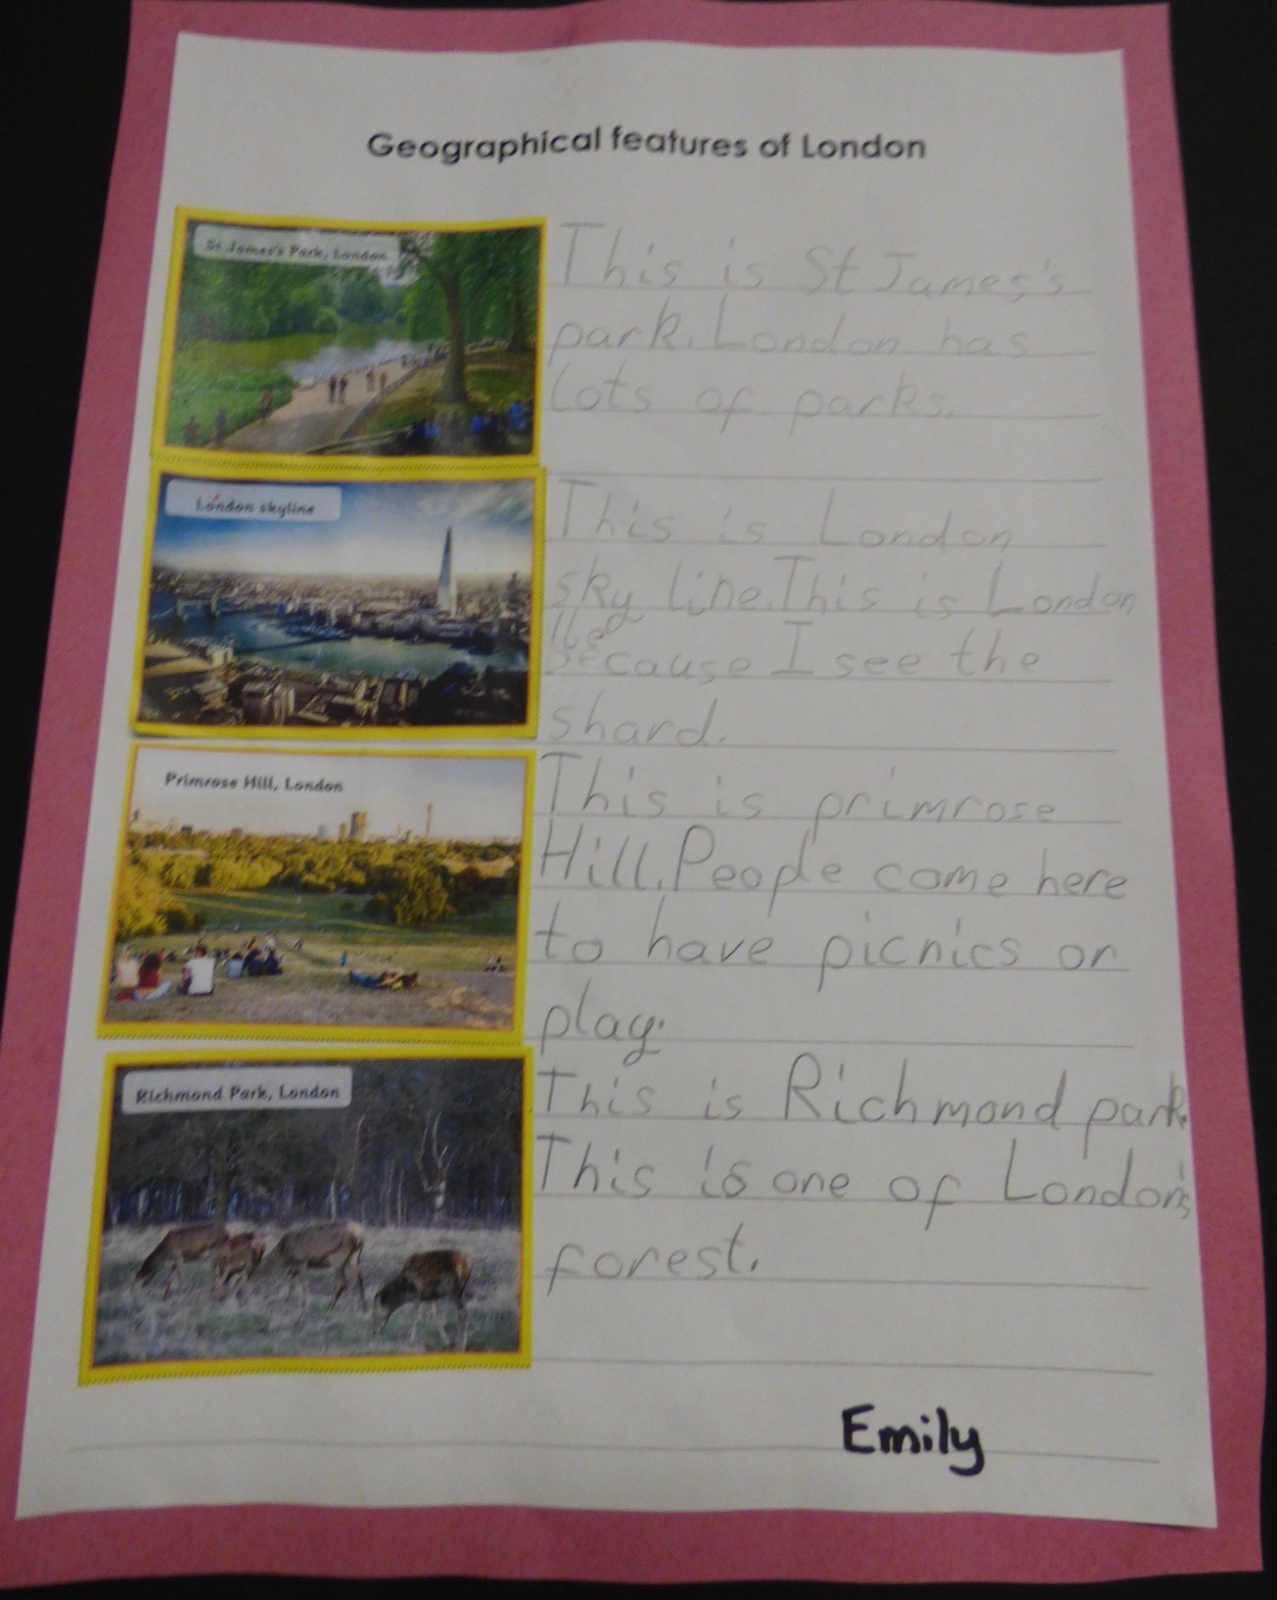 Geographical features of London
St James's Park, London
This is St James's
park. London has
lots of parks.
London skyline
This is London
sky line. This is London
because I see the
shard.
Primrose Hill, London
This is primrose
Hill. People come here
to have picnics or
play.
Richmond Park, London
This is Richmond park.
This is one of London's
forest.
Emily